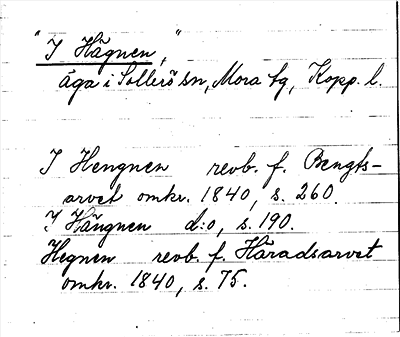 "I Hägnen,"
äga i Sollerö sn, Mora tg, Kopp. l.
I Hengnen revb. f. Bengts-
arvet omkr. 1840, s. 260.
I Hängnen d:o, s. 190.
Hegnen revb. f. Häradsarvet
omkr. 1840, s. 75.